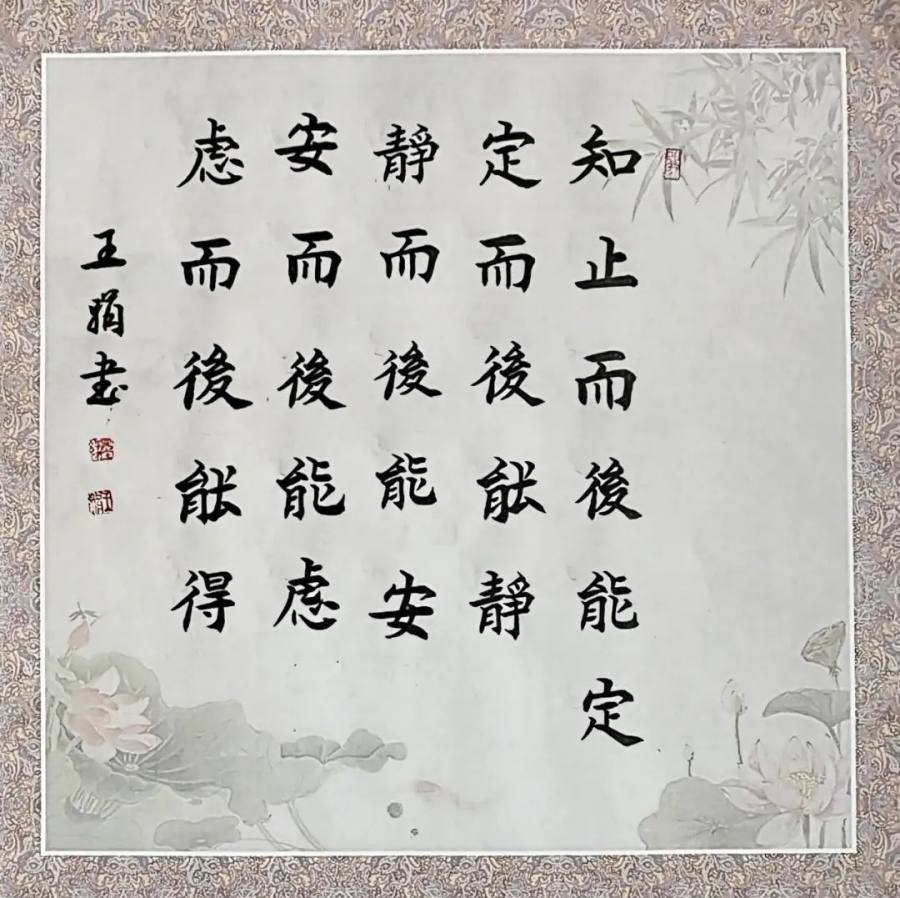 知止而後能定
定而後能靜
靜而後能安
安而後能虑
虑而後能得
王娟书